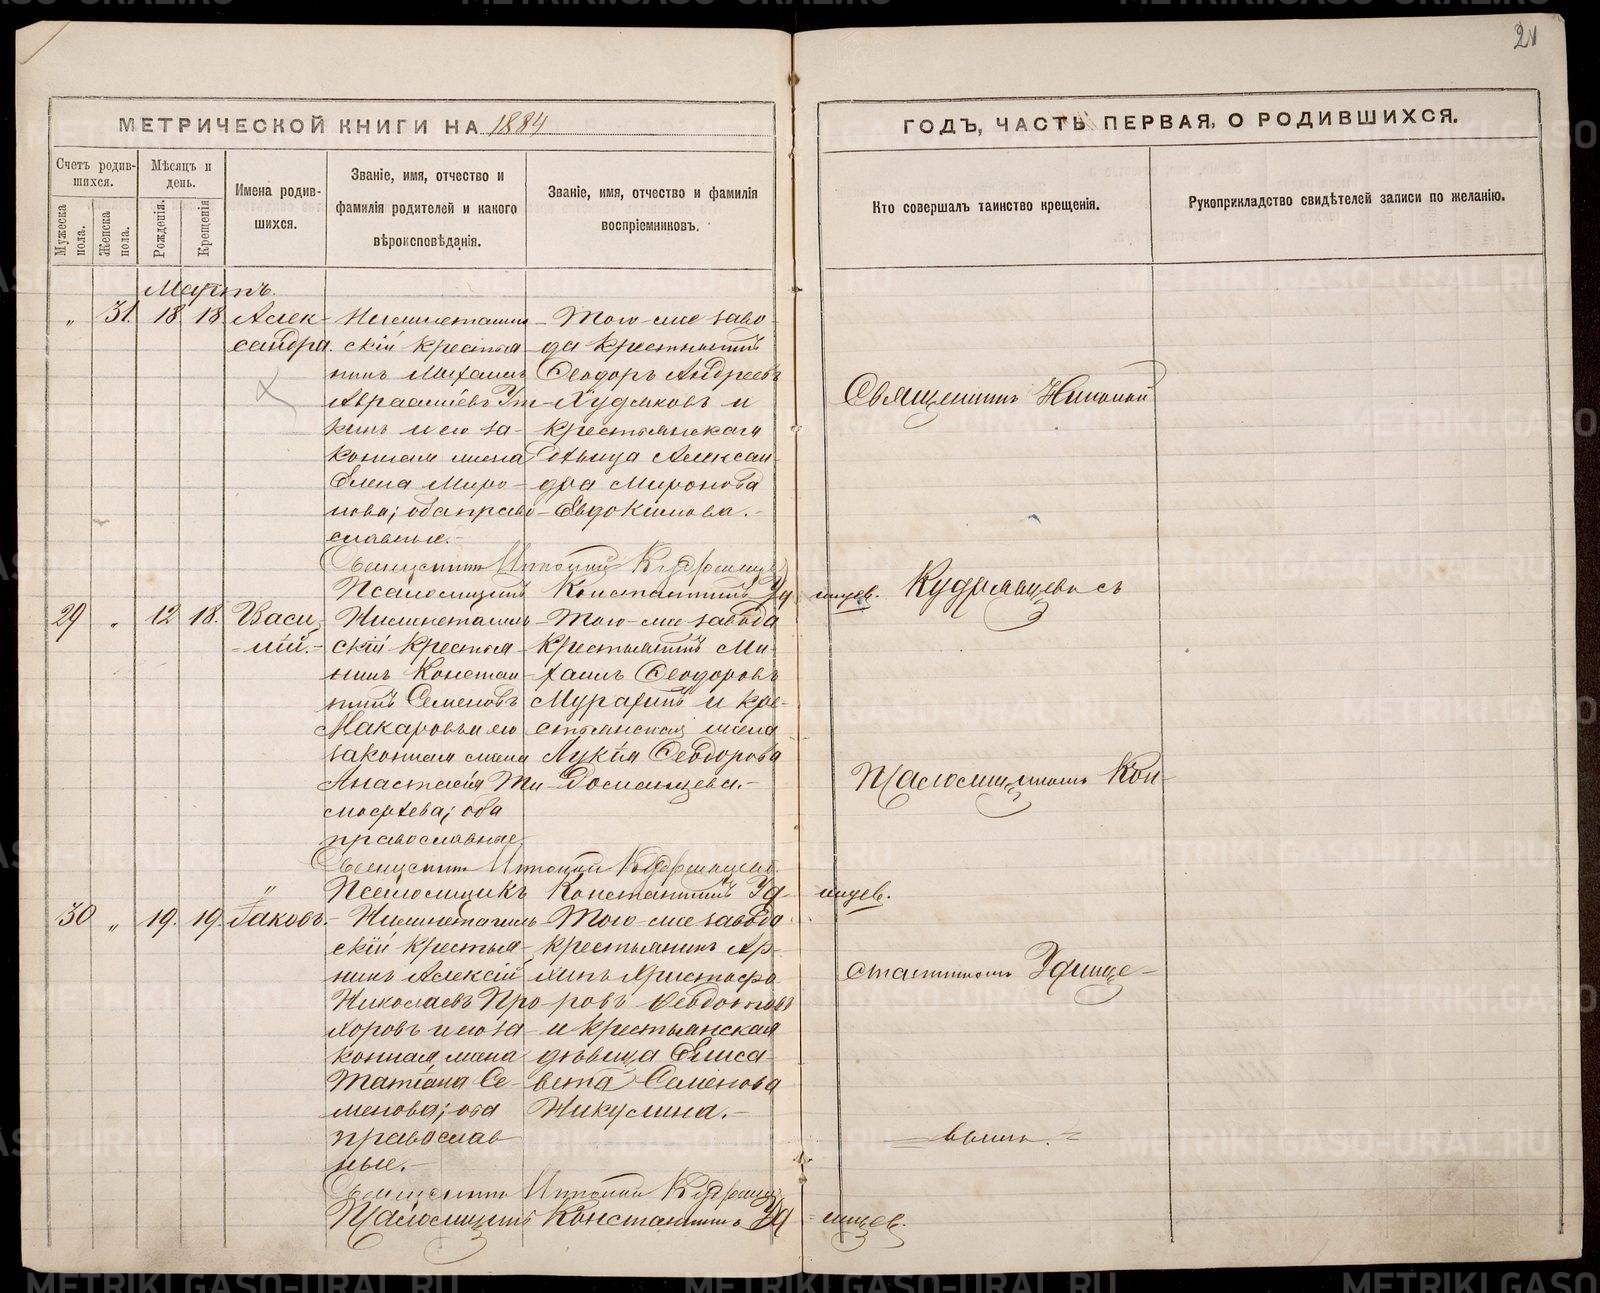 21
МЕТРИЧЕСКОЙ КНИГИ НА 1884
ГОДЪ, ЧАСТЬ ПЕРВАЯ, О РОДИВШИХСЯ.
Счетъ родившихся.
Мужеска пола.
Женска пола.
Мѣсяцъ и день.
Рожденія.
Крещенія
Имена родившихся.
Званіе, имя, отчество и
фамилія родителей и какого
вѣроисповѣданія.
Званіе, имя, отчество и фамилія
воспріемниковъ.
Кто совершалъ таинство крещенія.
Рукоприкладство свидѣтелей записи по желанію.
Мартъ.
„ 31. 18. 18. Алек-
сандра.
Нижнетагиль-
скій крестья-
нинъ Михаилъ
Авраамiевъ Ут-
кинъ и его за-
конная жена
Елена Миро-
нова; оба право-
славные.-
Того-же заво-
да крестьянинъ
Ѳеодоръ Андреевъ
Худяковъ и
крестьянская
дѣвица Алексан-
дра Миронова
Евдокимова.-
Священникъ Николай
Псаломщикъ Константинъ Уд-
инцев.
Кудрявцевъ съ
29 „ 12 18. Васи-
лій.-
Нижнетагиль-
скій крестья-
нинъ Констан-
тинъ Семеновъ
Макаровъ и его
законная жена
Анастасія Ти-
моѳеева; оба
православные
Того-же завода
крестьянинъ Ми-
хаилъ Ѳеодоровъ
и кре-
стьянская жена
Лукія Ѳеодорова
Псаломщикомъ Кон-
Псаломщикъ Константинъ Уд-
инцев.
30 „ 19. 19. Іаковъ.-
Нижнетагиль-
скій крестья-
нинъ Алексій
Николаевъ Про-
хоровъ и его за-
конная жена
Татіана Се-
менова; оба
православ-
ные.-
Того-же завода
крестьянинъ
и крестьянская
дѣвица Елиса-
вета Семенова
Никулина.-
стантиномъ Удинце-
вымъ.
Псаломщикъ Константинъ Уд-
инцев.
METRIKI.GASO-URAL.RU